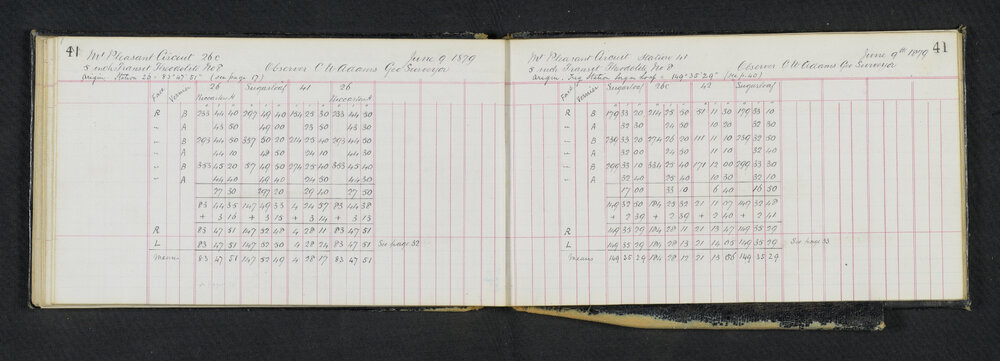 41
Mt Pleasant Circuit 26c June 9 1879
5 inch Transit Theodolite No 8 Observer C W Adams Geo Surveyor
Origin Station 26 = 83° 47' 51" (see page 17)
Face Vernier 26 Sugarloaf 41 26
R B 233 44 40 297 49 40 154 25 30 233 44 50
" A 43 50 49 00 23 50 43 30
" B 293 44 50 357 50 20 214 25 40 293 44 50
" A 44 10 48 50 24 10 44 30
" B 353 45 20 57 49 50 274 25 40 353 45 40
" A 44 40 49 40 24 50 44 30
27 30 297 20 29 40 27 50
83 44 35 147 49 33 4 24 57 83 44 38
+ 3 16 + 3 15 + 3 14 + 3 13
R 83 47 51 147 52 48 4 28 11 83 47 51
L 83 47 51 147 52 50 4 28 24 83 47 51 See page 52
Means 83 47 51 147 52 49 4 28 17 83 47 51
41
Mt Pleasant Circuit Station 41 June 9th 1879
5 inch Transit Theodolite No 8 Observer C W Adams Geo Surveyor
Origin, Trig Station Sugar Loaf = 149° 35' 29" (see p. 40)
Face Vernier Sugarloaf 26c 42 Sugarloaf
R B 179 33 20 214 25 50 51 11 30 179 33 10
" A 32 30 24 50 10 20 32 30
" B 239 33 20 274 26 20 111 11 10 239 32 50
" A 32 00 24 50 11 10 32 40
" B 299 33 10 334 25 40 171 12 00 299 33 30
" A 32 40 25 40 10 30 32 10
17 00 33 10 6 40 16 50
149 32 50 184 25 32 21 11 07 149 32 48
+ 2 39 + 2 39 + 2 40 + 2 41
R 149 35 29 184 28 11 21 13 47 149 35 29
L 149 35 29 184 28 13 21 14 05 149 35 29 See page 53
Means 149 35 29 184 28 12 21 13 56 149 35 29